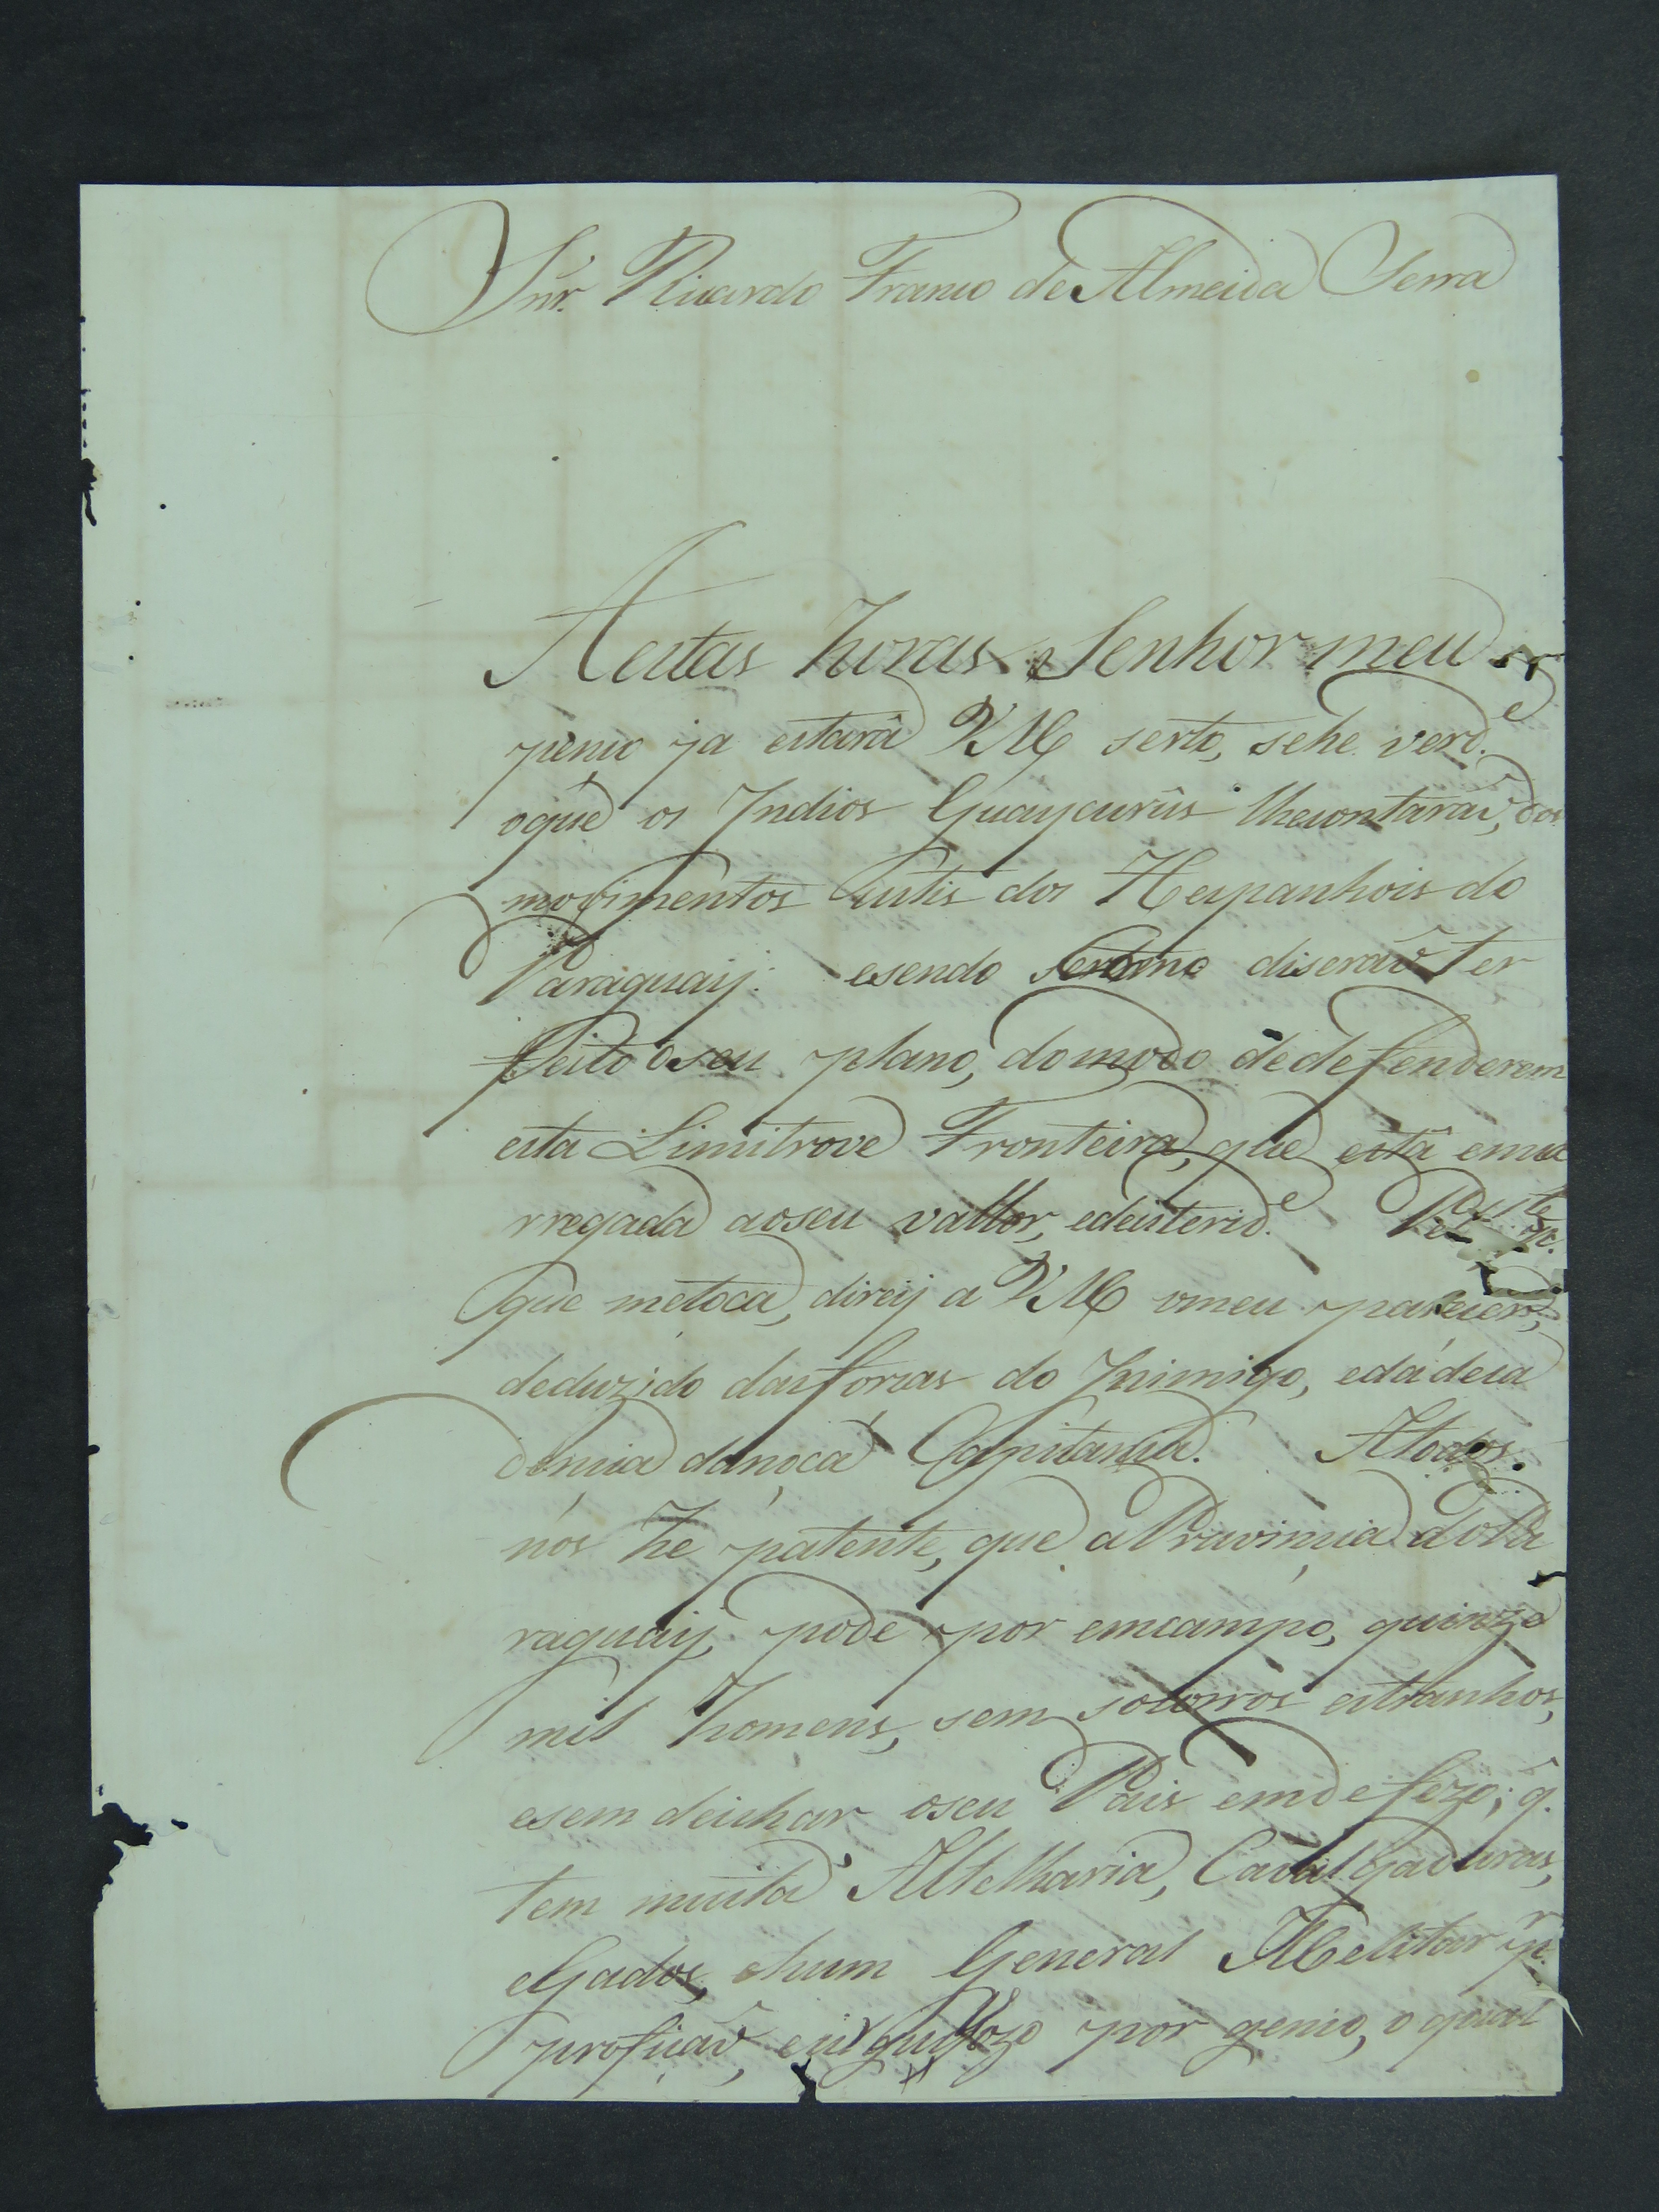 Snr. Ricardo Franco de Almeida Serra
Aestas horas Senhor meu
penço ja estarâ VM serto, sehe verd.e
oque os Indios Guaycurûs lhecontaraõ, dos
movimentos ostis dos Hespanhois do
Paraguaij: esendo diseraõ ter
feito oseu plano, domodo dedefenderem
esta Limitrove Fronteira, que estâ emca
rregada aoseu vallor, edeisterid.e
que metoca, direij a VM omeu pareicer,
deduzido dasforcas do Inimigo, edádeca
dencia danoça Capitania. Atodos
nós he patente, que aProvinçia doPa
raguaij, pode por emcampo, quinze
mil homens, sem socorros estranhos,
esem deichar oseu Pais emdefezo; q.
tem muita Altelharia, Cavalgaduras,
eGados, ehum General Melitar p.r
profiçaõ, eorgulhozo por genio, o qual